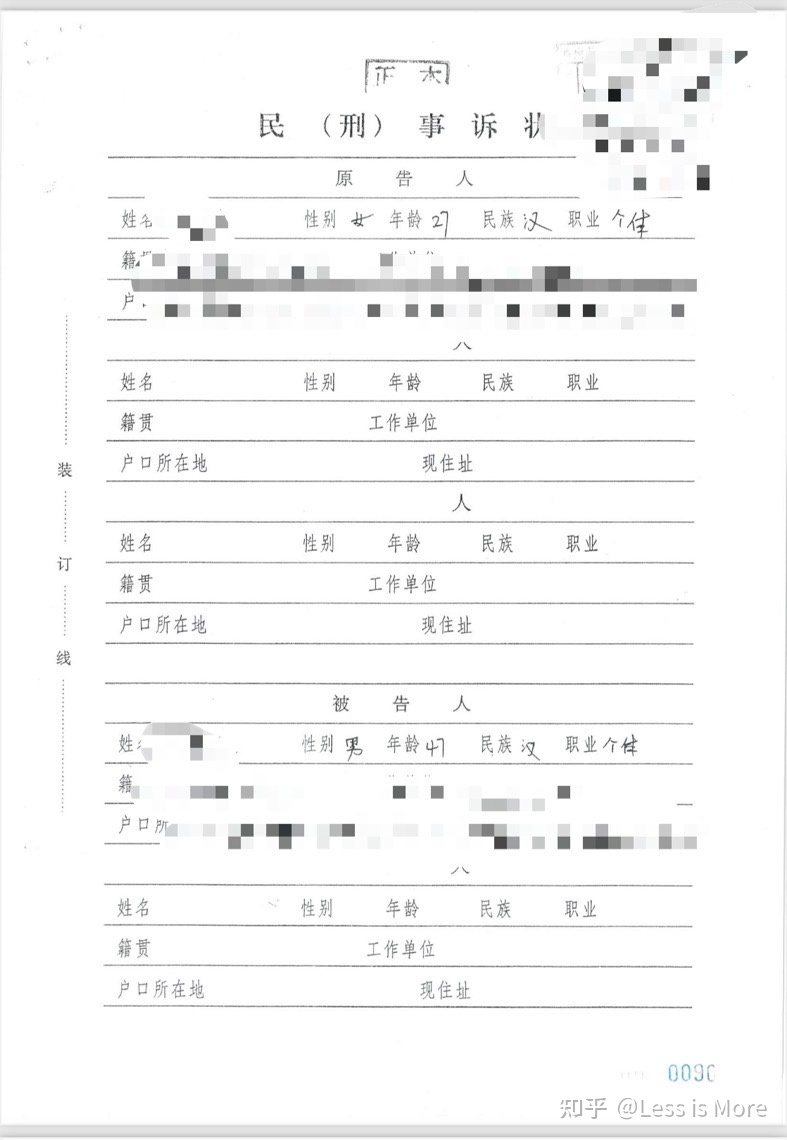 正本
民（刑）事诉状
原告人
姓名 性别 女 年龄 27 民族 汉 职业 个体
籍
户口
人
姓名 性别 年龄 民族 职业
籍贯 工作单位
户口所在地 现住址
人
姓名 性别 年龄 民族 职业
籍贯 工作单位
户口所在地 现住址
被告人
姓 性别 男 年龄 47 民族 汉 职业 个体
籍
户口所
人
姓名 性别 年龄 民族 职业
籍贯 工作单位
户口所在地 现住址
装
订
线
0090
知乎 @Less is More